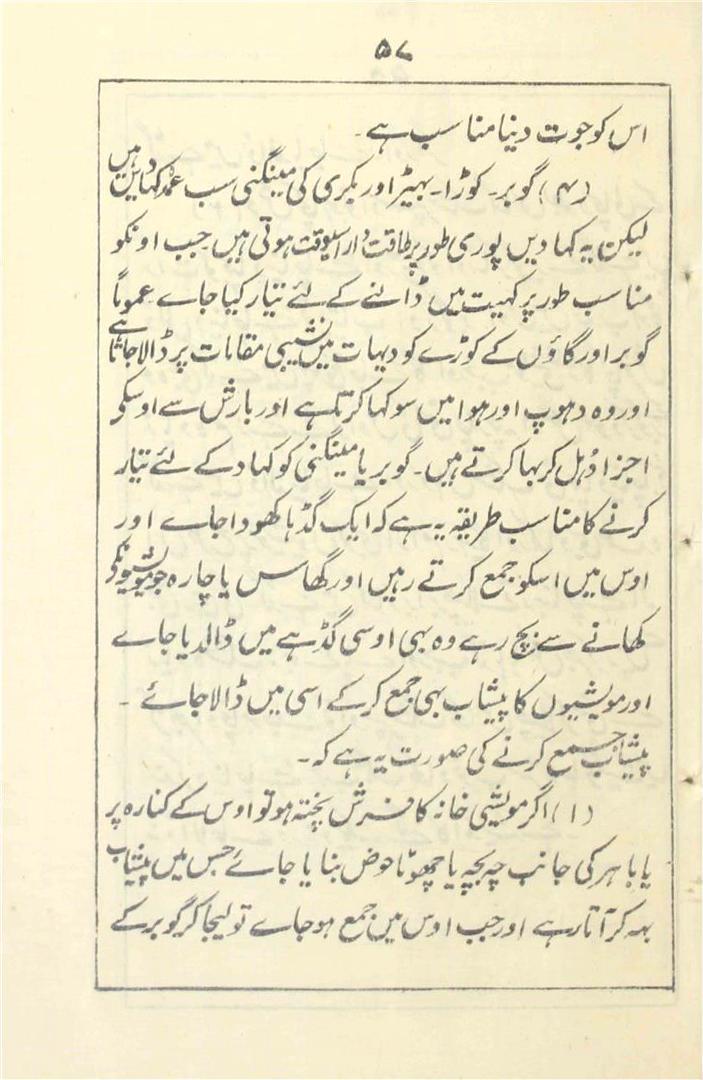 ۵۷
اس کو جوت دینا مناسب ہے۔
(۴) گوبر۔ کوڑا۔ بہیڑ اور بکری کی مینگنی سب عمدہ کہادیں ہیں
لیکن یہ کہادیں پوری طور پر طاقت دار اسیوقت ہوتی ہیں جب اونکو
مناسب طور پر کہیت میں ڈالنے کے لئے تیار کیا جاے عموماً
گوبر اور گاؤں کے کوڑے کو دیہات میں نشیبی مقامات پر ڈالا جاتا ہے
اور وہ دہوپ اور ہوا میں سوکہا کرتا ہے اور بارش سے اوسکی
اجزا دُہل کر بہا کرتے ہیں۔ گوبر یا مینگنی کو کہاد کے لئے تیار
کرنے کا مناسب طریقہ یہ ہے کہ ایک گڈہا کھودا جاے اور
اوس میں اسکو جمع کرتے رہیں اور گھاس یا چارہ جو مویشیونکی
کھانے سے بچ رہے وہ بہی اوسی گڈہے میں ڈالدیا جاے
اور مویشیوں کا پیشاب بہی جمع کر کے اسی میں ڈالا جائے ۔
پیشاب جمع کرنے کی صورت یہ ہے کہ۔
(۱) اگر مویشی خانہ کا فرش پختہ ہو تو اوس کے کنارہ پر
یا باہر کی جانب چہ بچہ یا چھوٹا حوض بنا یا جائے جس میں پیشاب
بہہ کر آتا رہے اور جب اوس میں جمع ہو جاے تو لیجا کر گوبر کے